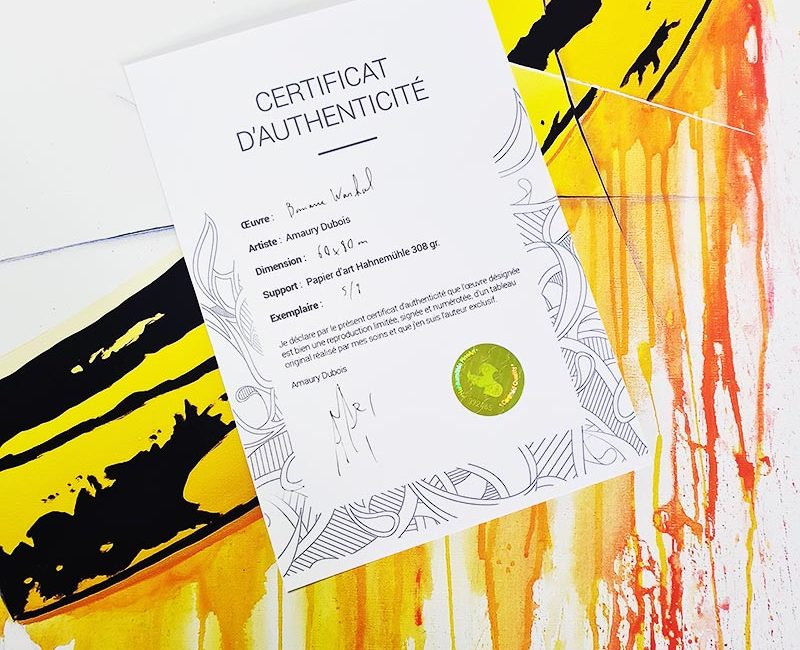 CERTIFICAT
D'AUTHENTICITÉ
Œuvre : Banane Warhol
Artiste : Amaury Dubois
Dimension : 60 x 90 cm
Support : Papier d'art Hahnemühle 308 gr.
Exemplaire :
Je déclare par le présent certificat d'authenticité que l'œuvre désignée
est bien une reproduction limitée, signée et numérotée, d'un tableau
original réalisé par mes soins et que j'en suis l'auteur exclusif.
Amaury Dubois